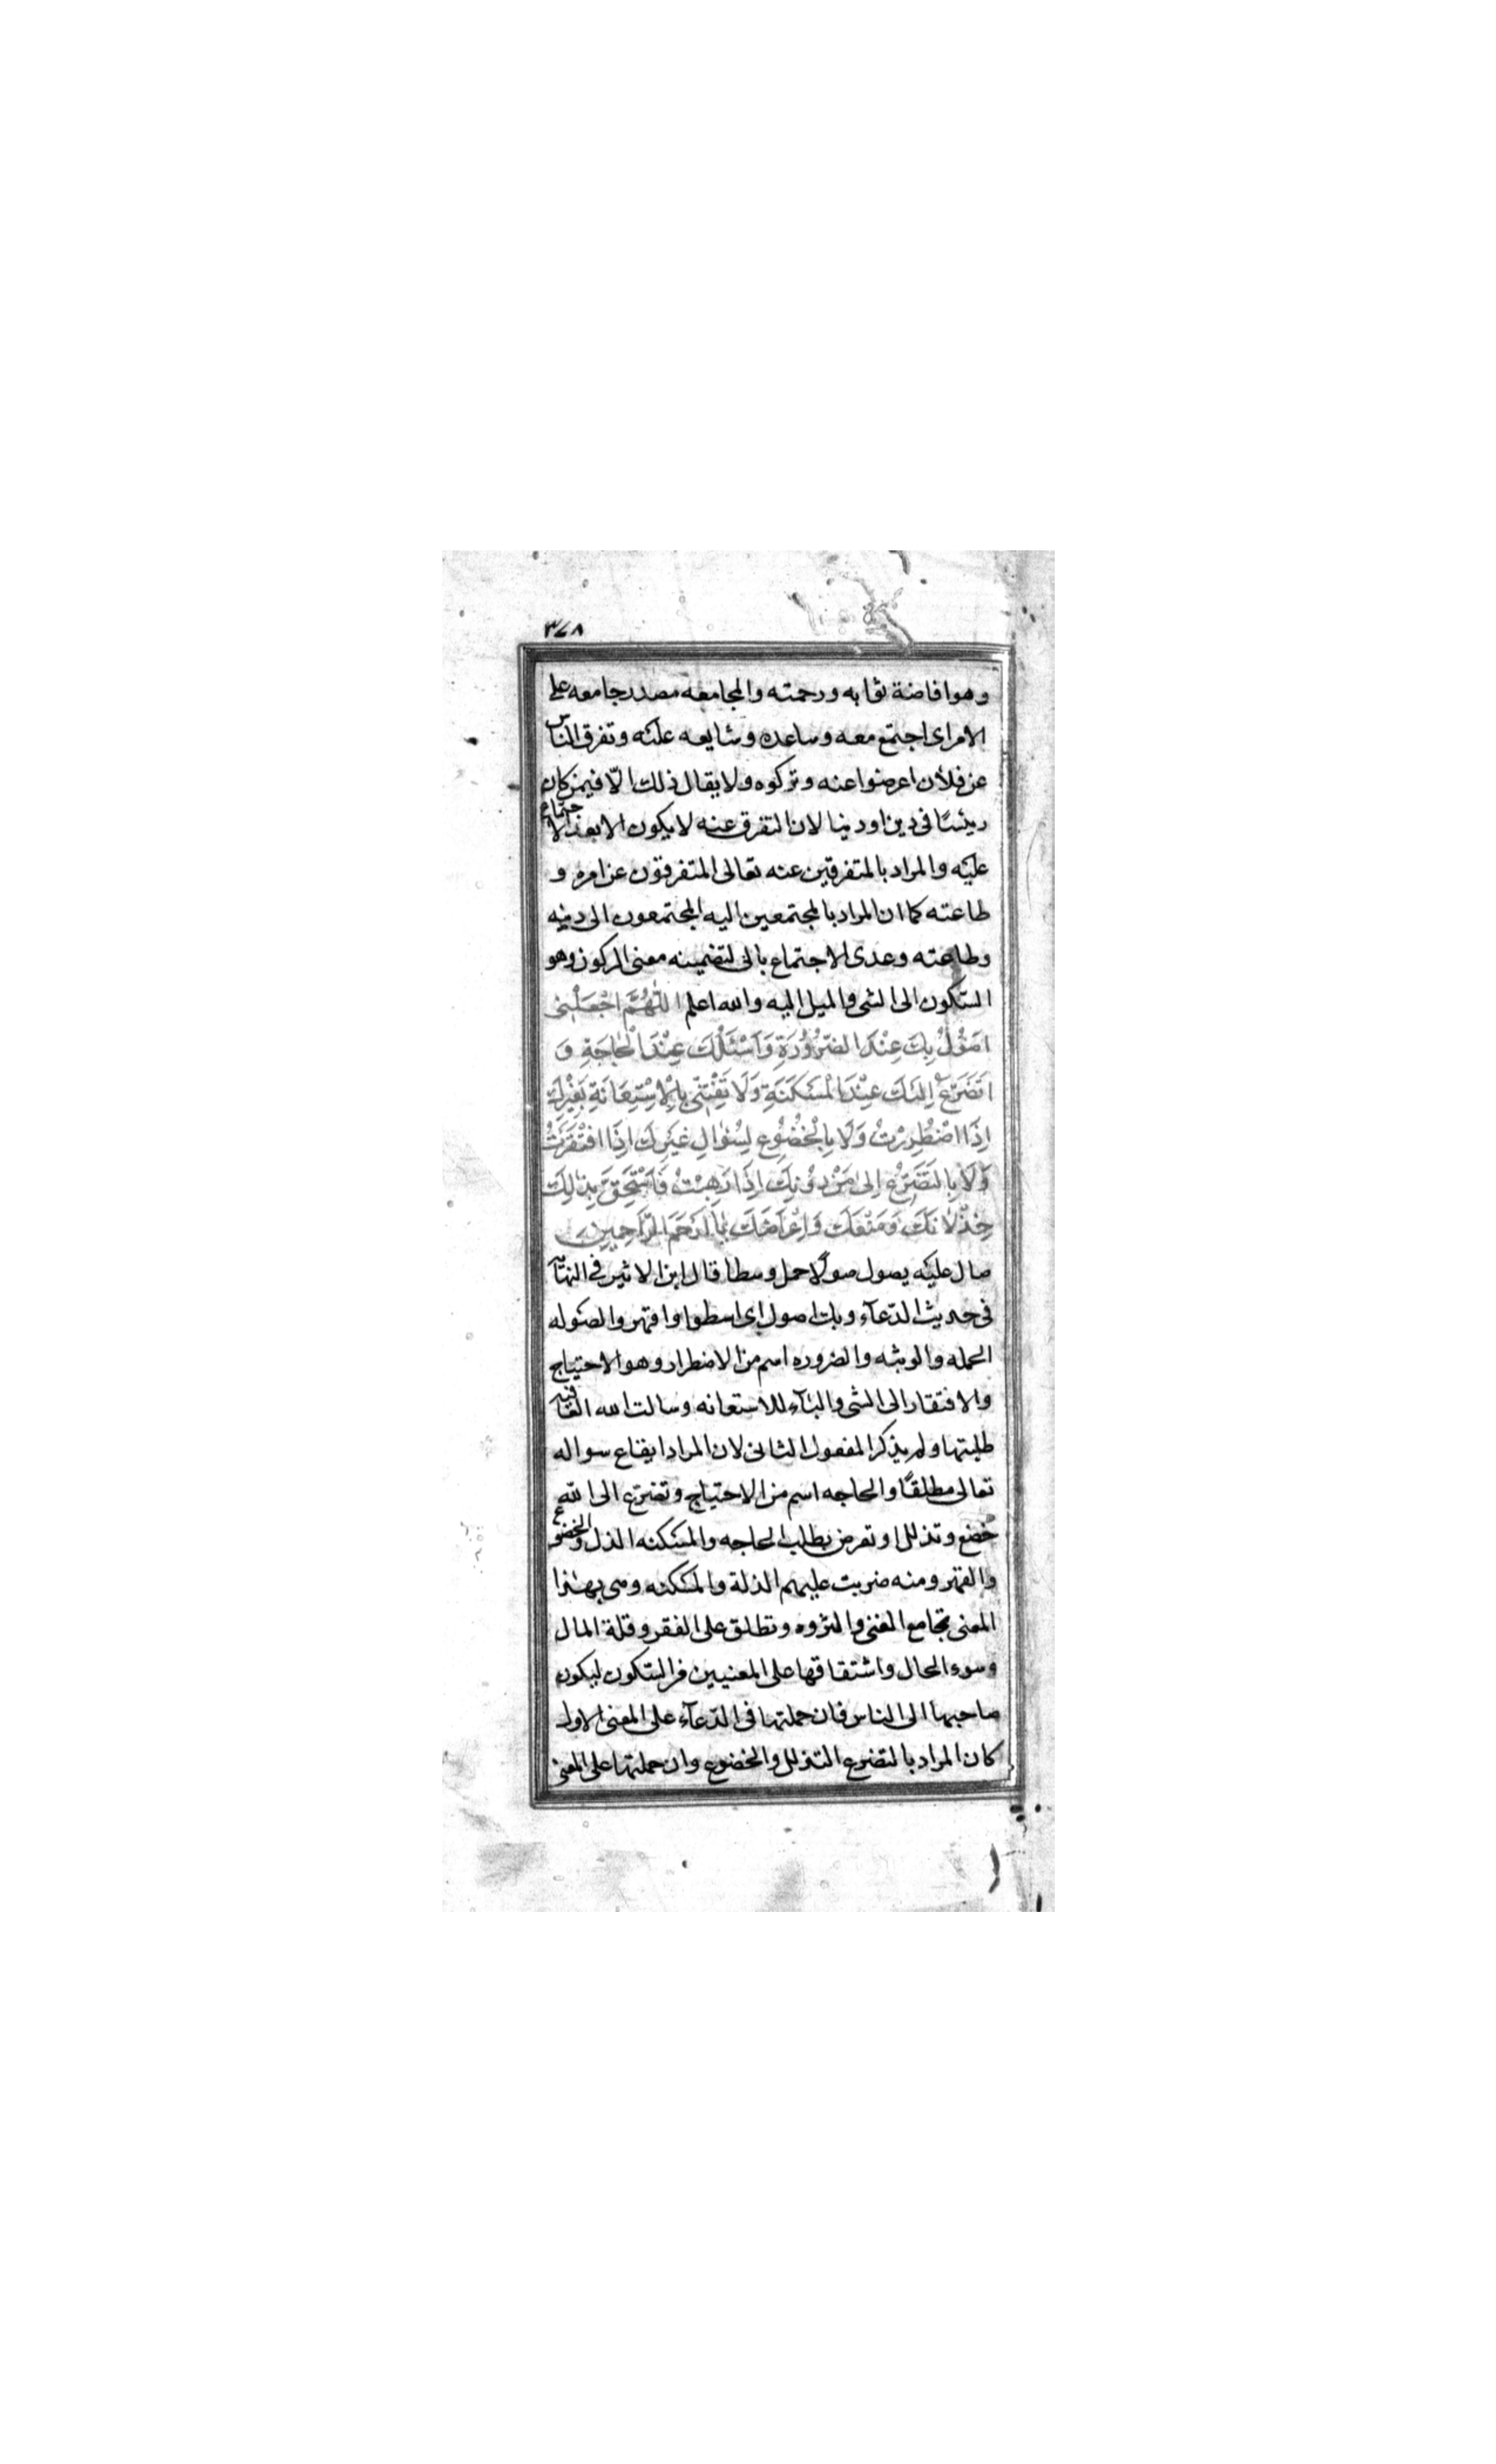 ٣٧٨
وهو افاضة ثوابه ورحمته والمجامعه مصدر جامعه على
الامر اى اجتمع معه وساعده وشايعه عليه وتفرق الناس
عن فلان اعرضوا عنه وتركوه ولا يقال ذلك الّا فيمن كان
رئيسًا فى دين او دنيا لان التفرق عنه لا يكون الا بعد الاجتماع
عليه والمراد بالمتفرقين عنه تعالى المتفرقون عن امره و
طاعته كما ان المراد بالمجتمعين اليه المجتمعون الى دينه
وطاعته وعدى الاجتماع بالى لتضمينه معنى الركون وهو
السّكون الى الشى والميل اليه والله اعلم اللّٰهُمَّ اجْعَلْنى
اَصُوْلُ بِكَ عِنْدَ الضَّرُوْرَةِ وَاَسْئَلُكَ عِنْدَ الْحَاجَةِ وَ
اَتَضَرَّعُ اِلَيْكَ عِنْدَ الْمَسْكَنَةِ وَلَا تَفْتِنّى بِالْاِسْتِعَانَةِ بِغَيْرِكَ
اِذَا اضْطُرِرْتُ وَلَا بِالْخُضُوْعِ لِسُؤالِ غَيْرِكَ اِذَا افْتَقَرْتُ
وَلَا بِالتَّضَرُّعِ اِلىٰ مَنْ دُوْنِكَ اِذَا رَهِبْتُ فَاَسْتَحِقَّ بِذٰلِكَ
خِذْلَانَكَ وَمَنْعَكَ وَاِعْرَاضَكَ يٰا اَرْحَمَ الرَّاحِمِينَ
صال عليه يصول صولًا حمل وسطا قال ابن الاثير فى النهايه
فى حديث الدّعآء وبك اصول اى اسطوا واقهر والصّوله
الحمله والوثبه والضروره اسم من الاضطرار وهو الاحتياج
والافتقار الى الشى والبآء للاستعانه وسالت الله العافيه
طلبتها ولم يذكر المفعول الثانى لان المراد ايقاع سواله
تعالى مطلقًا والحاجه اسم من الاحتياج وتضرّع الى اللّه
خضع وتذلل او تعرض بطلب الحاجه والمسكنه الذل والخضوع
والقهر ومنه ضربت عليهم الذلة والمسكنه وهى بهذا
المعنى تجامع الغنى والثروه وتطلق على الفقر وقلة المال
وسوء الحال واشتقاقها على المعنيين من السّكون ليكون
صاحبها الى الناس فان حملتها فى الدّعآء على المعنى الاول
كان المراد بالتضرع التذلل والخضوع وان حملتها على المعنى